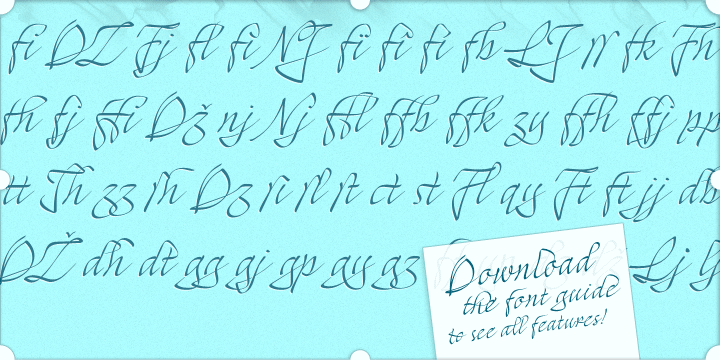 fi DZ Fj fl fi NJ fï fî fì fb LJ rr tk Fh
th fj ffi Dž nj Nj ffl ffb ffk zy ffh ffj pp
tt Th zz ſh Dz ſi ſl ſt ct st Fl qy Ft ft jj db
DŽ dh dt gg gj gp gy gz Lj lj
Download
the font guide
to see all features!